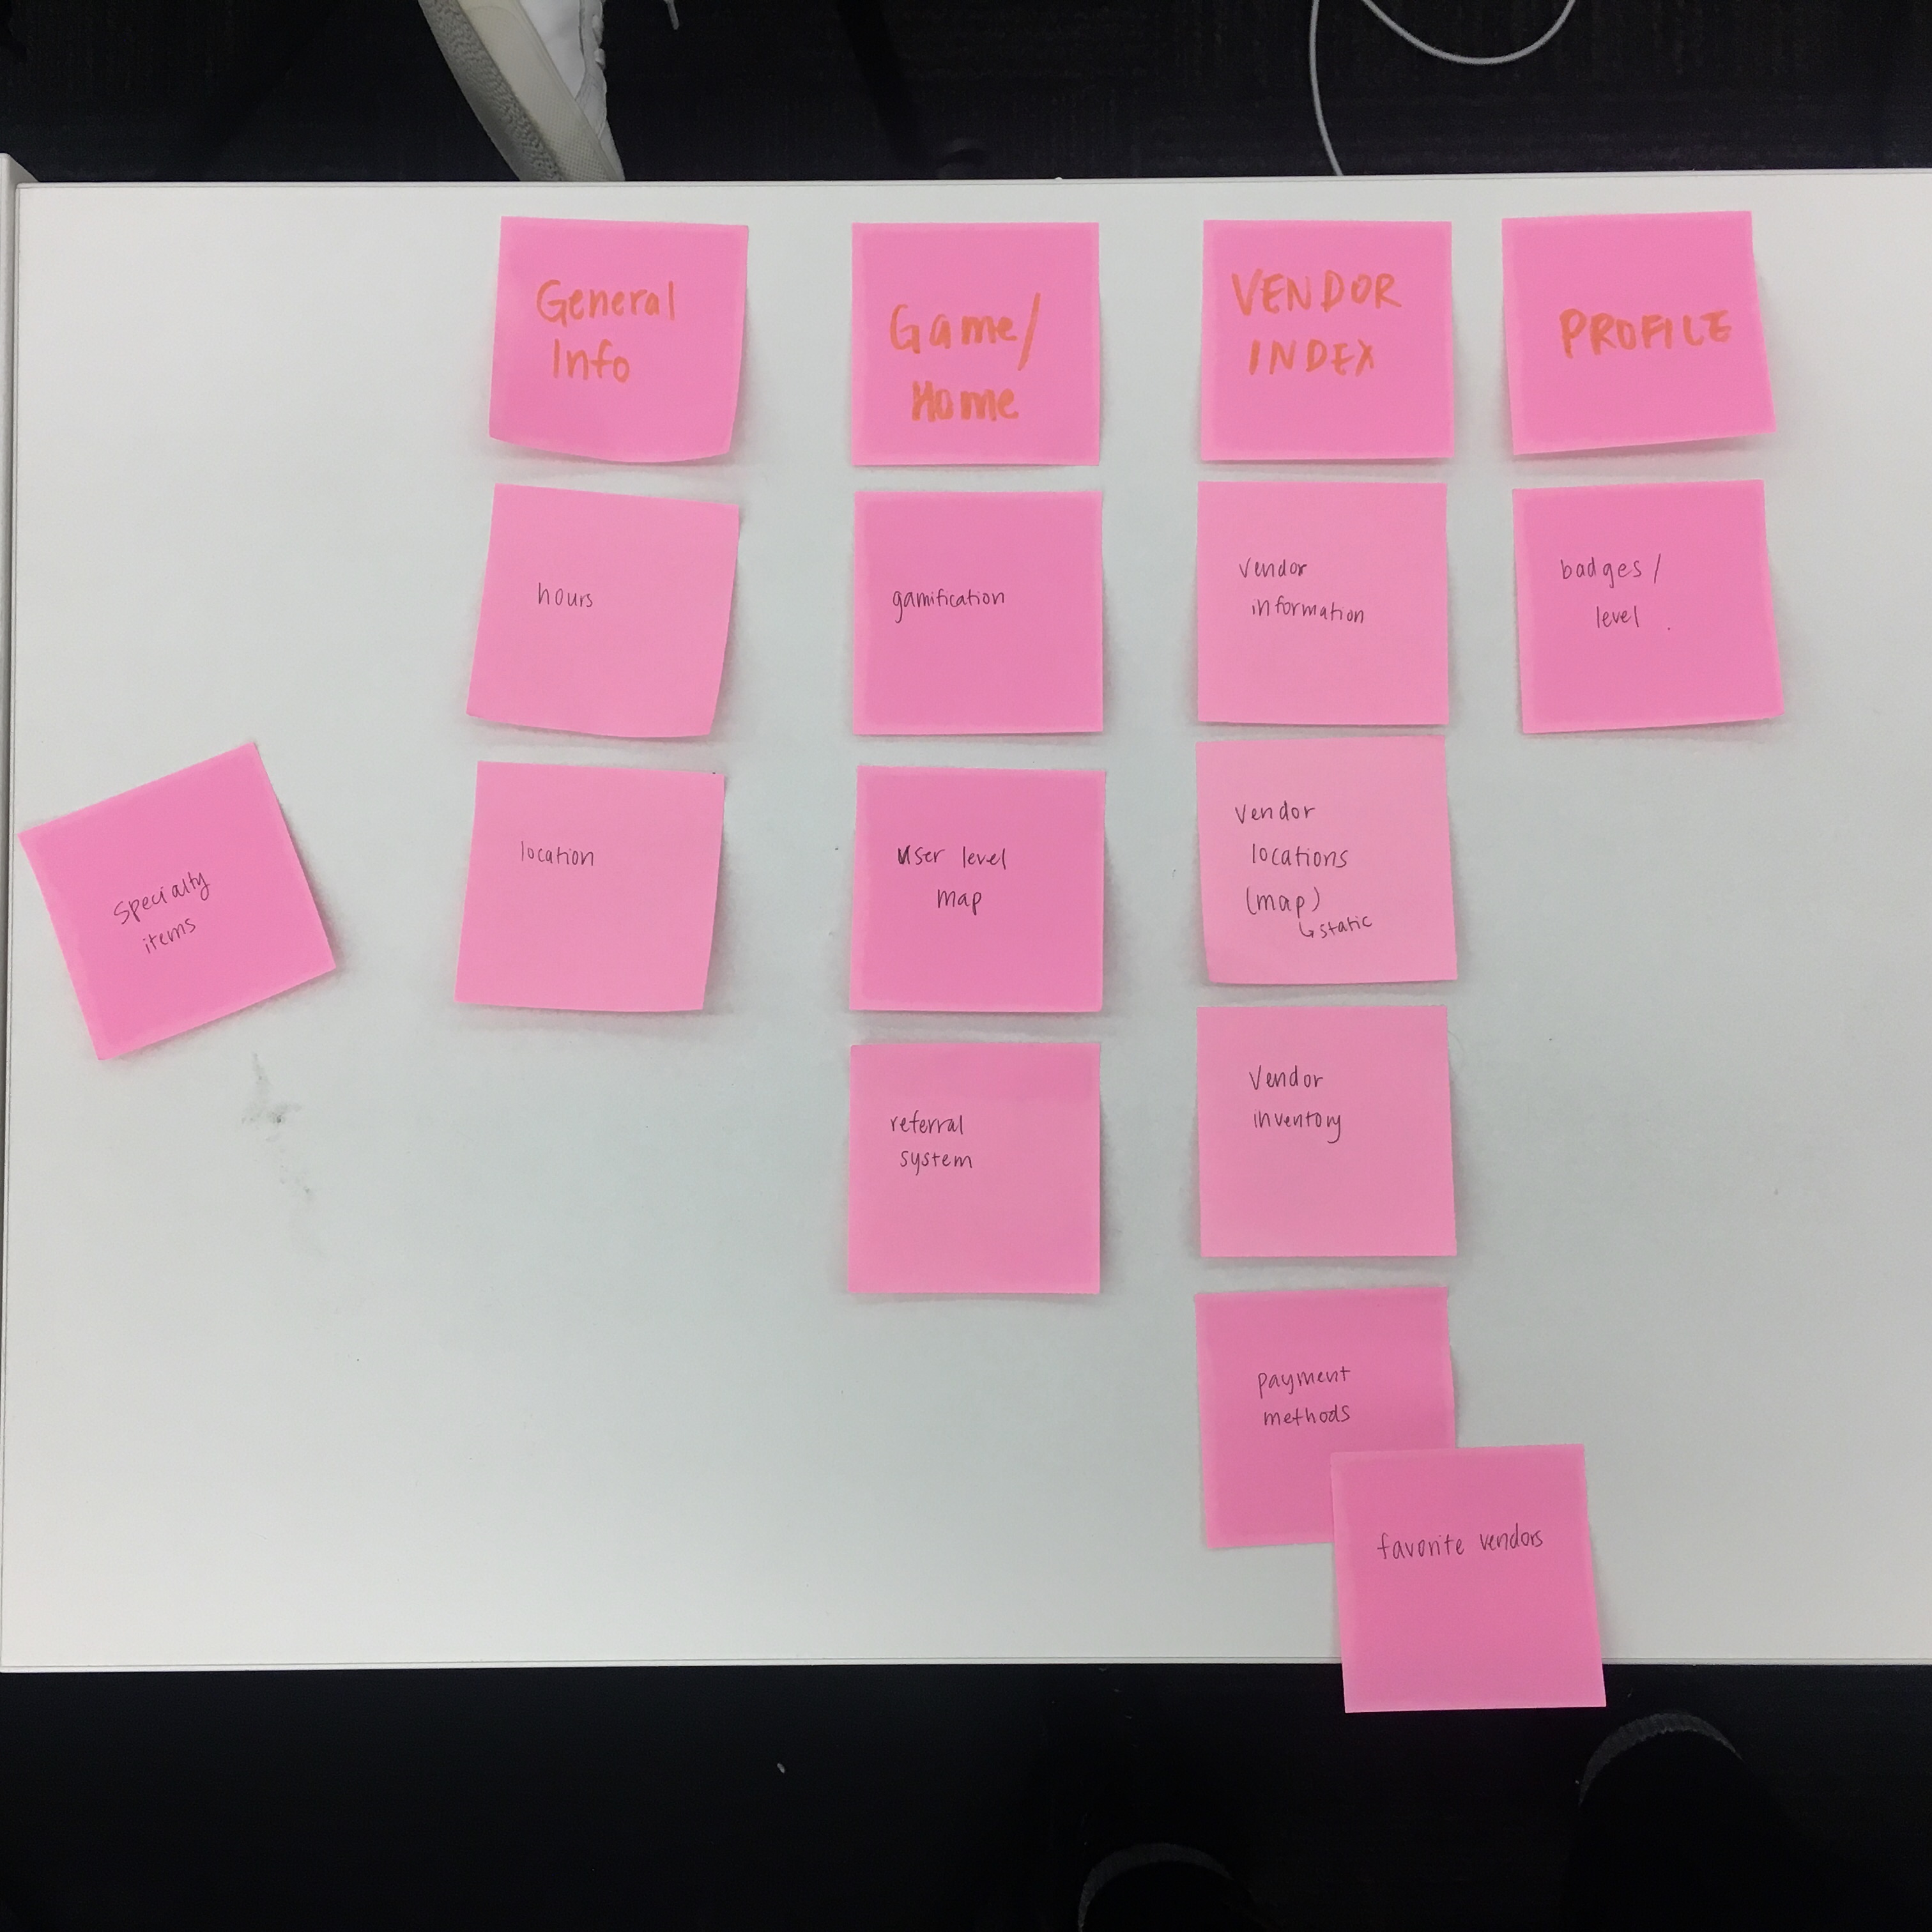 General
Info
hours
location
Game/
Home
gamification
user level
map
referral
system
VENDOR
INDEX
vendor
information
vendor
locations
(map)
↳ static
Vendor
inventory
payment
methods
favorite vendors
PROFILE
badges/
level .
specialty
items